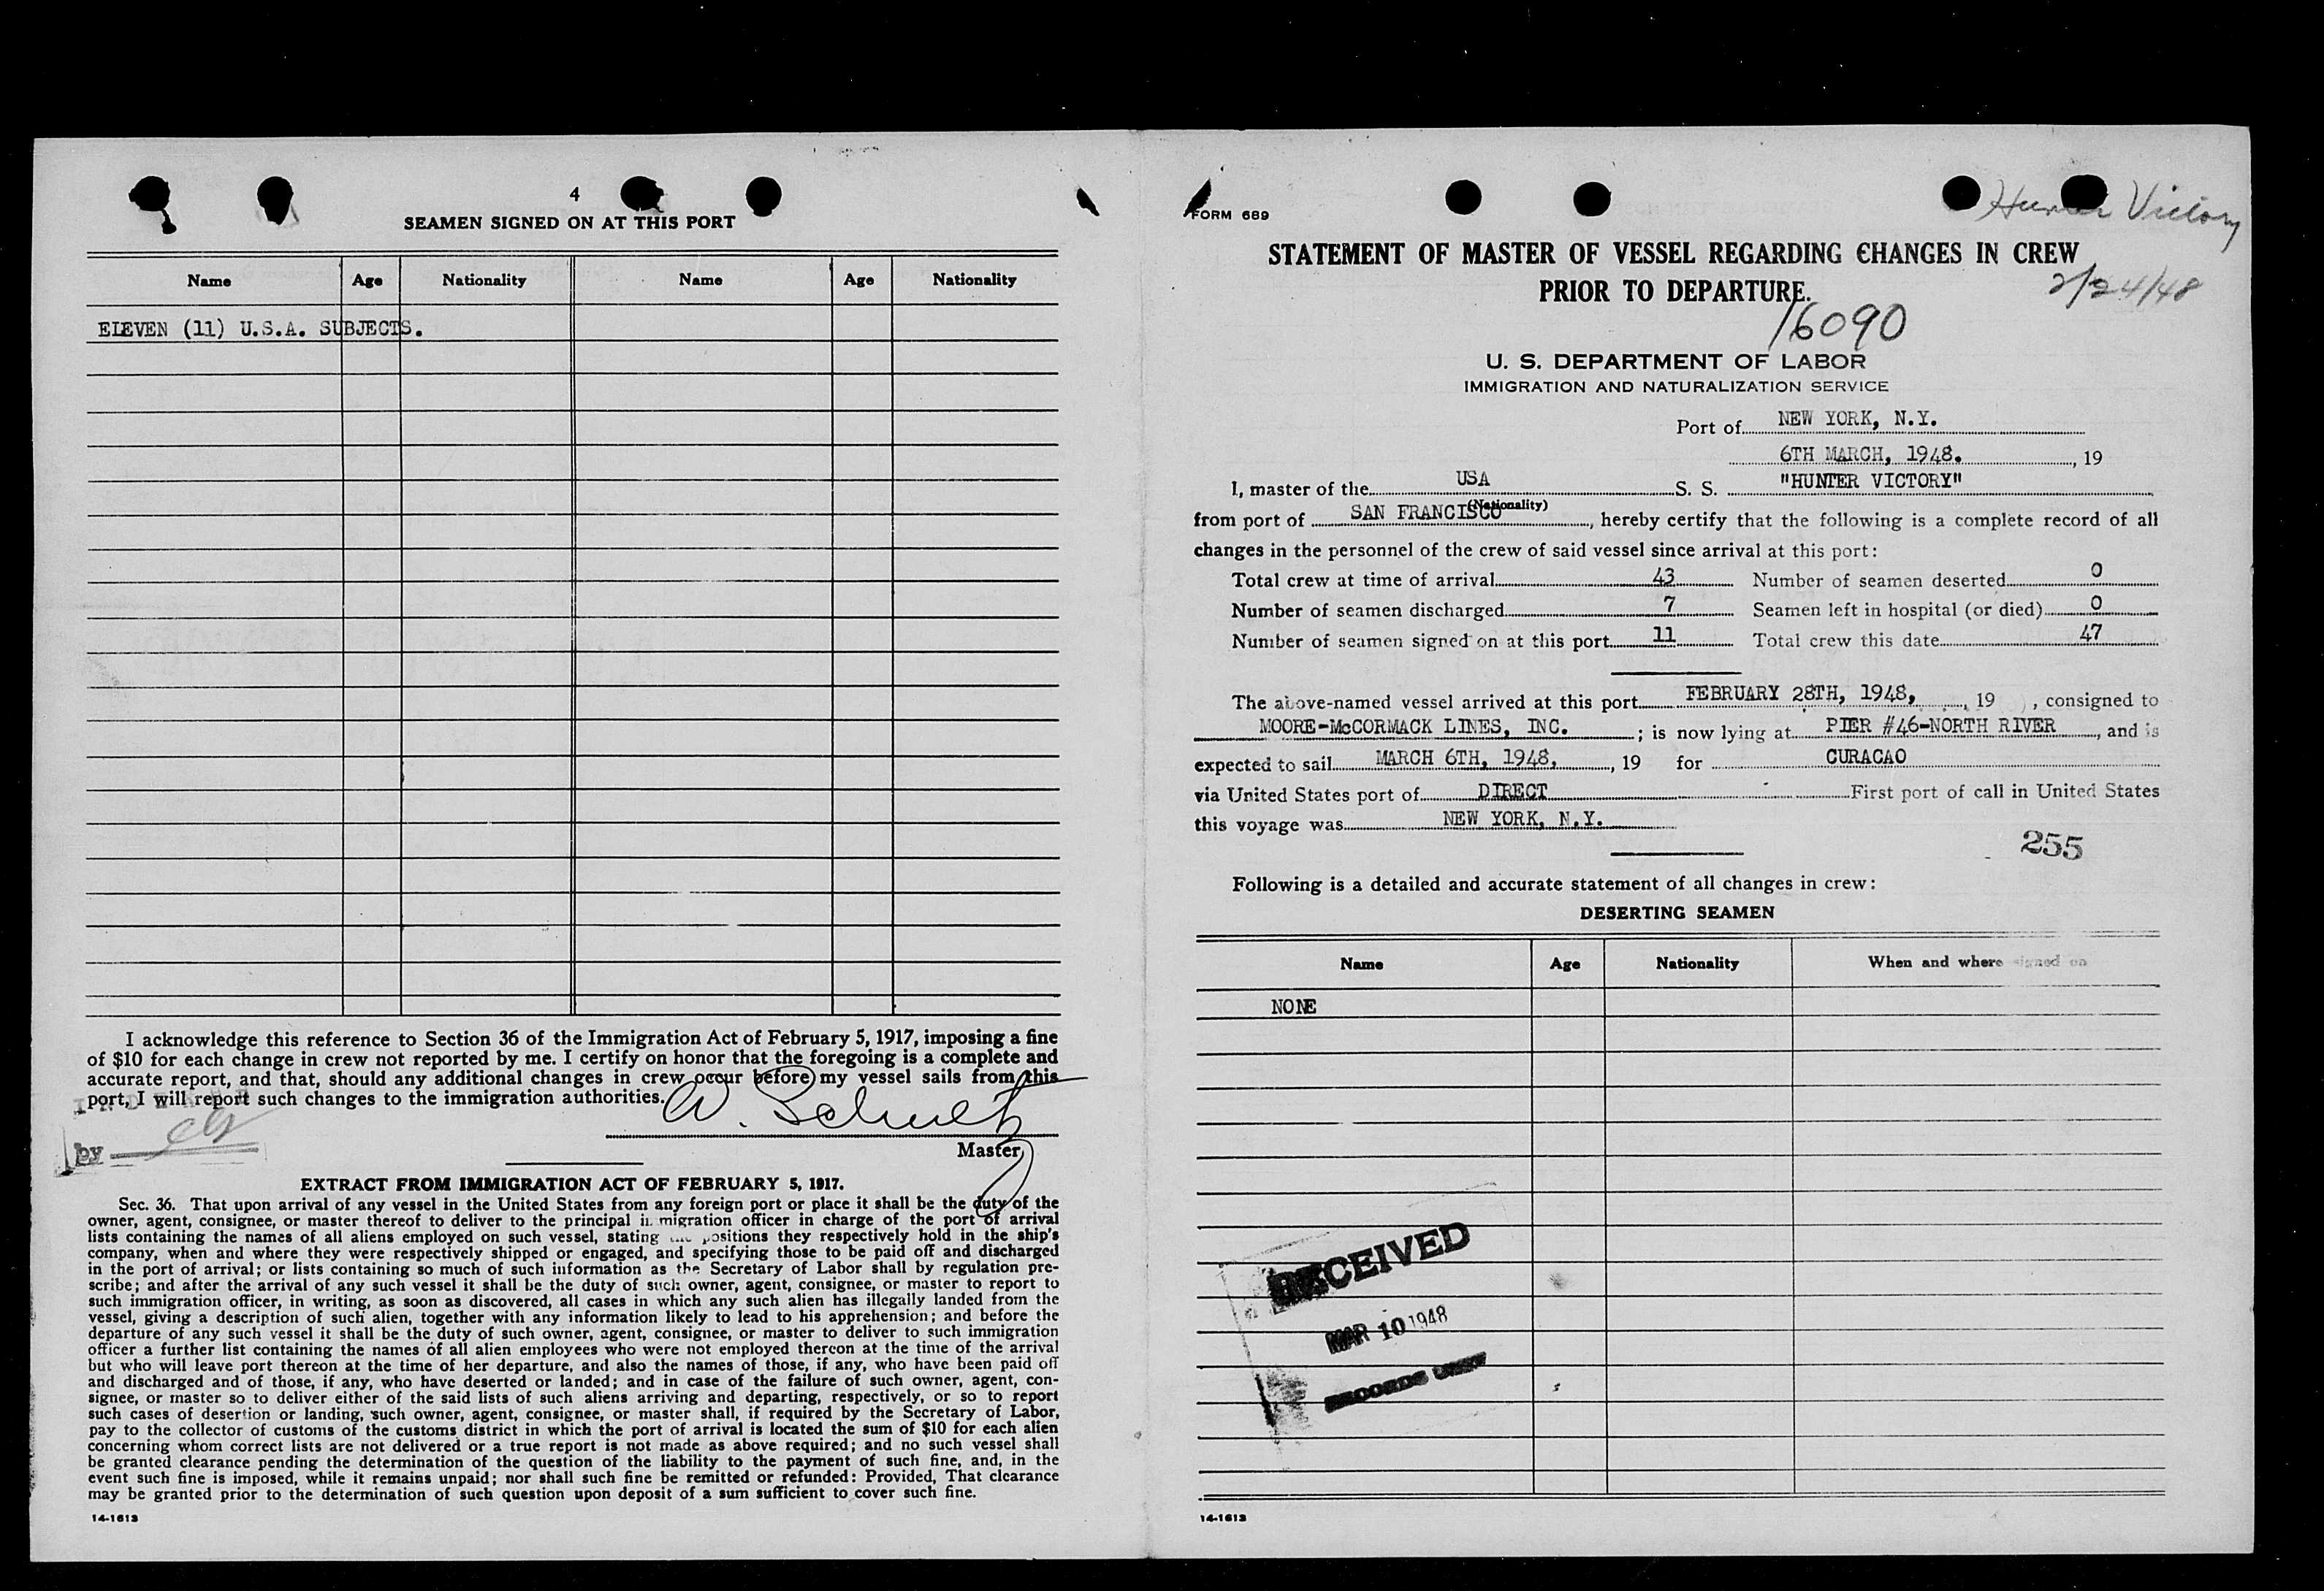 4
SEAMEN SIGNED ON AT THIS PORT
Name Age Nationality Name Age Nationality
ELEVEN (11) U.S.A. SUBJECTS.
I acknowledge this reference to Section 36 of the Immigration Act of February 5, 1917, imposing a fine
of $10 for each change in crew not reported by me. I certify on honor that the foregoing is a complete and
accurate report, and that, should any additional changes in crew occur before my vessel sails from this
port, I will report such changes to the immigration authorities.
W. Schultz
by
Master
EXTRACT FROM IMMIGRATION ACT OF FEBRUARY 5, 1917.
Sec. 36. That upon arrival of any vessel in the United States from any foreign port or place it shall be the duty of the
owner, agent, consignee, or master thereof to deliver to the principal immigration officer in charge of the port of arrival
lists containing the names of all aliens employed on such vessel, stating the positions they respectively hold in the ship's
company, when and where they were respectively shipped or engaged, and specifying those to be paid off and discharged
in the port of arrival; or lists containing so much of such information as the Secretary of Labor shall by regulation pre-
scribe; and after the arrival of any such vessel it shall be the duty of such owner, agent, consignee, or master to report to
such immigration officer, in writing, as soon as discovered, all cases in which any such alien has illegally landed from the
vessel, giving a description of such alien, together with any information likely to lead to his apprehension; and before the
departure of any such vessel it shall be the duty of such owner, agent, consignee, or master to deliver to such immigration
officer a further list containing the names of all alien employees who were not employed thereon at the time of the arrival
but who will leave port thereon at the time of her departure, and also the names of those, if any, who have been paid off
and discharged and of those, if any, who have deserted or landed; and in case of the failure of such owner, agent, con-
signee, or master so to deliver either of the said lists of such aliens arriving and departing, respectively, or so to report
such cases of desertion or landing, such owner, agent, consignee, or master shall, if required by the Secretary of Labor,
pay to the collector of customs of the customs district in which the port of arrival is located the sum of $10 for each alien
concerning whom correct lists are not delivered or a true report is not made as above required; and no such vessel shall
be granted clearance pending the determination of the question of the liability to the payment of such fine, and, in the
event such fine is imposed, while it remains unpaid; nor shall such fine be remitted or refunded: Provided, That clearance
may be granted prior to the determination of such question upon deposit of a sum sufficient to cover such fine.
14-1613
FORM 689
Hunter Victory
STATEMENT OF MASTER OF VESSEL REGARDING CHANGES IN CREW
PRIOR TO DEPARTURE.
2/24/48
16090
U. S. DEPARTMENT OF LABOR
IMMIGRATION AND NATURALIZATION SERVICE
Port of NEW YORK, N.Y.
6TH MARCH, 1948. , 19
I, master of the USA S. S. "HUNTER VICTORY"
(Nationality)
from port of SAN FRANCISCO , hereby certify that the following is a complete record of all
changes in the personnel of the crew of said vessel since arrival at this port:
Total crew at time of arrival 43 Number of seamen deserted 0
Number of seamen discharged 7 Seamen left in hospital (or died) 0
Number of seamen signed on at this port 11 Total crew this date 47
The above-named vessel arrived at this port FEBRUARY 28TH, 1948, , 19 , consigned to
MOORE-McCORMACK LINES, INC. ; is now lying at PIER #46-NORTH RIVER , and is
expected to sail MARCH 6TH, 1948, , 19 for CURACAO
via United States port of DIRECT First port of call in United States
this voyage was NEW YORK, N.Y.
255
Following is a detailed and accurate statement of all changes in crew:
DESERTING SEAMEN
Name Age Nationality When and where signed on
NONE
RECEIVED
MAR 10 1948
RECORDS UNIT
14-1613